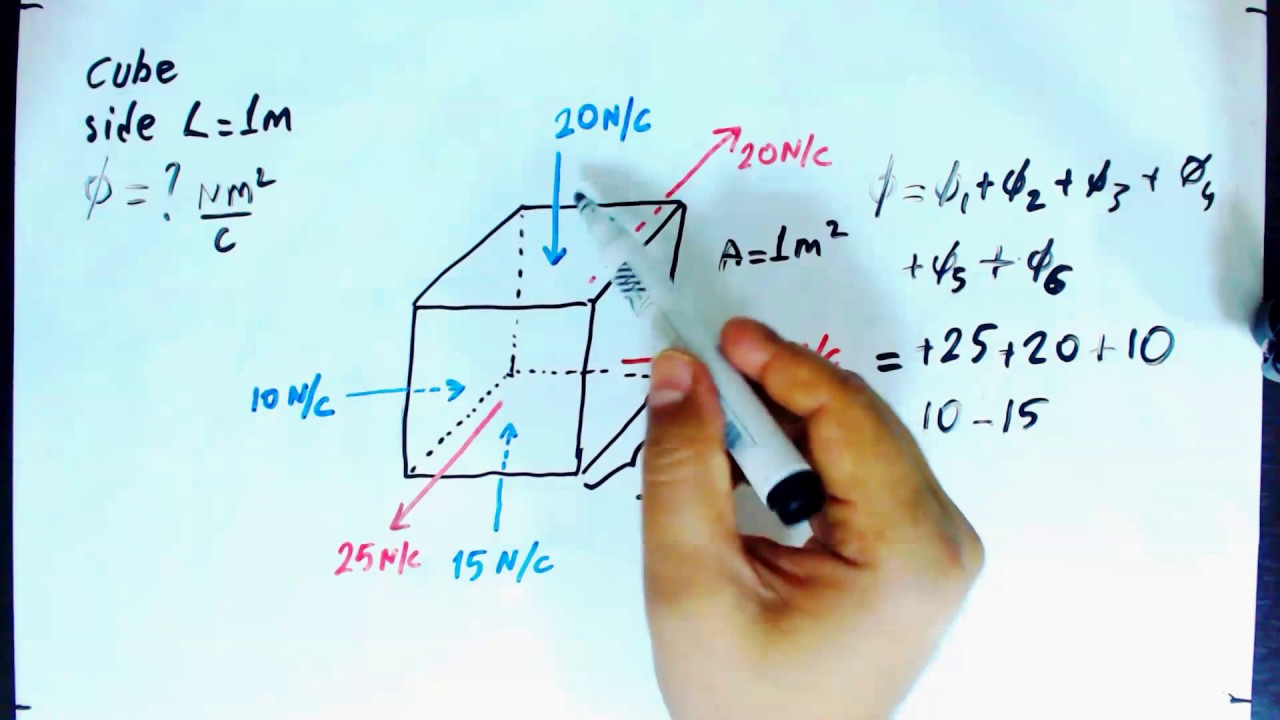 Cube
side L=1m
ϕ = ? Nm²/C
20N/C
20N/C
A=1m²
10 N/C
25 N/C
15 N/C
ϕ = ϕ₁+ϕ₂+ϕ₃+ϕ₄
+ϕ₅+ϕ₆
= +25+20+10
10-15